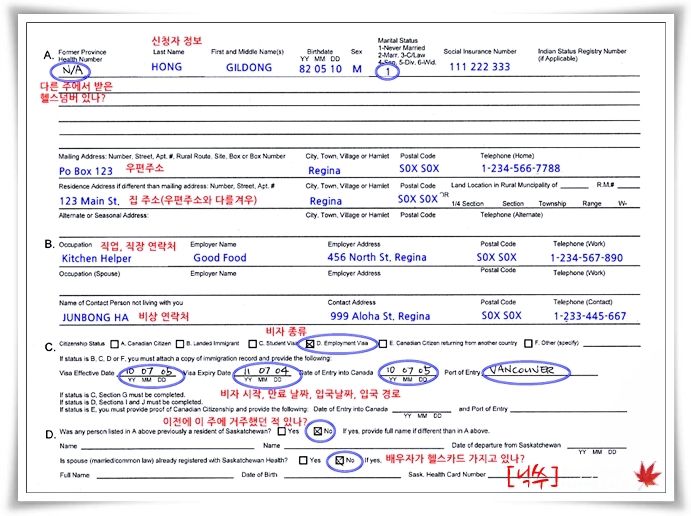 신청자 정보
A. Former Province Health Number Last Name First and Middle Name(s) Birthdate YY MM DD Sex Marital Status 1-Never Married 2-Marr. 3-C/Law 4-Sep. 5-Div. 6-Wid. Social Insurance Number Indian Status Registry Number (if Applicable)
N/A HONG GILDONG 82 05 10 M 1 111 222 333
다른 주에서 받은
헬스넘버 있나?
Mailing Address: Number, Street, Apt. #, Rural Route, Site, Box or Box Number City, Town, Village or Hamlet Postal Code Telephone (Home)
Po Box 123 우편주소 Regina S0X S0X 1-234-566-7788
Residence Address if different than mailing address: Number, Street, Apt. # City, Town, Village or Hamlet Postal Code Land Location in Rural Municipality of R.M.#
123 Main St. 집 주소(우편주소와 다를겨우) Regina S0X S0X OR 1/4 Section Section Township Range W-
Alternate or Seasonal Address: City, Town, Village or Hamlet Postal Code Telephone (Alternate)
B. Occupation 직업, 직장 연락처 Employer Name Employer Address Postal Code Telephone (Work)
Kitchen Helper Good Food 456 North St, Regina S0X S0X 1-234-567-890
Occupation (Spouse) Employer Name Employer Address Postal Code Telephone (Work)
Name of Contact Person not living with you Contact Address Postal Code Telephone (Contact)
JUNBONG HA 비상 연락처 999 Aloha St. Regina S0X S0X 1-233-445-667
비자 종류
C. Citizenship Status A. Canadian Citizen B. Landed Immigrant C. Student Visa D. Employment Visa E. Canadian Citizen returning from another country F. Other (specify)
If status is B, C, D or F, you must attach a copy of immigration record and provide the following:
Visa Effective Date 10 07 05 Visa Expiry Date 11 07 04 Date of Entry into Canada 10 07 05 Port of Entry VANCOUVER
YY MM DD YY MM DD YY MM DD
If status is C, Section G must be completed. 비자 시작, 만료 날짜, 입국날짜, 입국 경로
If status is D, Sections I and J must be completed.
If status is E, you must provide proof of Canadian Citizenship and provide the following: Date of Entry into Canada and Port of Entry
YY MM DD
이전에 이 주에 거주했던 적 있나?
D. Was any person listed in A above previously a resident of Saskatchewan? Yes No If yes, provide full name if different than in A above.
Name Name Date of departure from Saskatchewan
YY MM DD
Is spouse (married/common law) already registered with Saskatchewan Health? Yes No If yes, 배우자가 헬스카드 가지고 있나?
Full Name Date of Birth Sask. Health Card Number